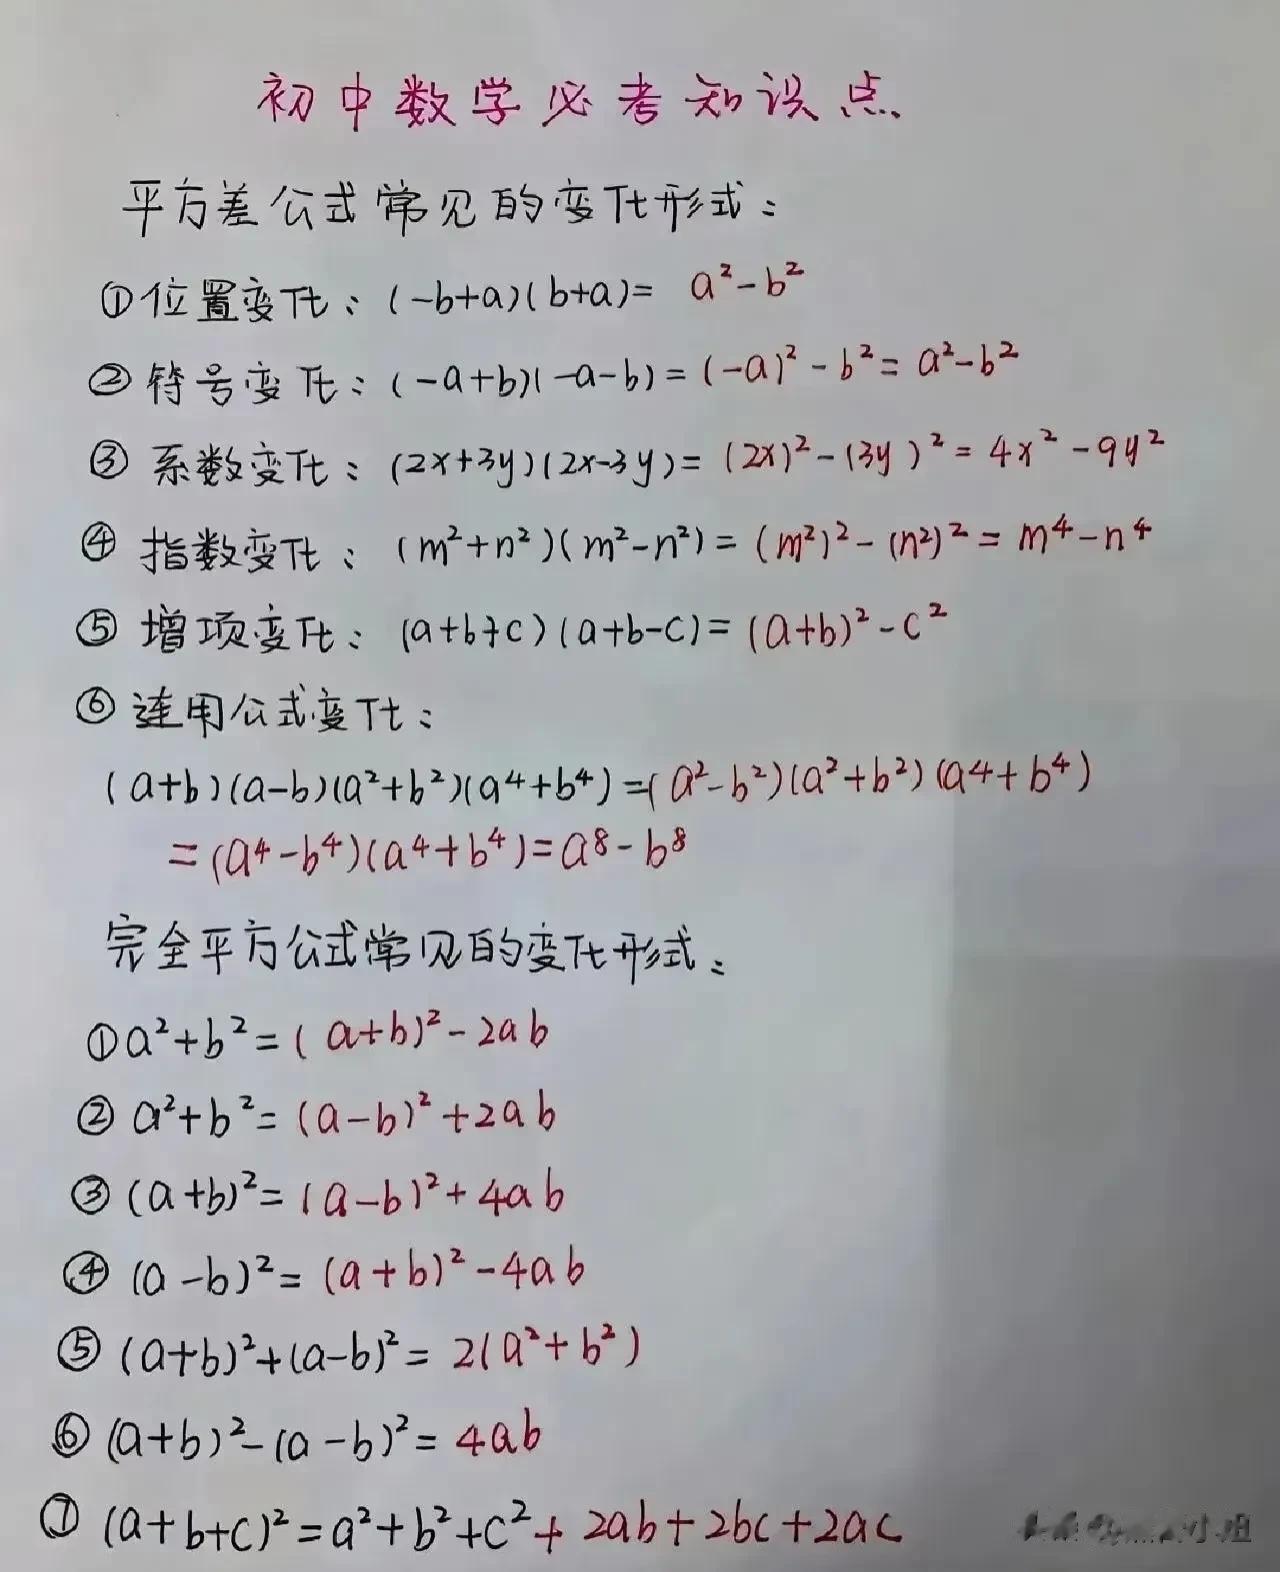 初中数学必考知识点
平方差公式常见的变化形式：
①位置变化：(-b+a)(b+a)= a²-b²
②符号变化：(-a+b)(-a-b)=(-a)²-b²=a²-b²
③系数变化：(2x+3y)(2x-3y)=(2x)²-(3y)²=4x²-9y²
④指数变化：(m²+n²)(m²-n²)=(m²)²-(n²)²=m⁴-n⁴
⑤增项变化：(a+b+c)(a+b-c)=(a+b)²-c²
⑥连用公式变化：
(a+b)(a-b)(a²+b²)(a⁴+b⁴)=(a²-b²)(a²+b²)(a⁴+b⁴)
=(a⁴-b⁴)(a⁴+b⁴)=a⁸-b⁸
完全平方公式常见的变化形式：
①a²+b²=(a+b)²-2ab
②a²+b²=(a-b)²+2ab
③(a+b)²=(a-b)²+4ab
④(a-b)²=(a+b)²-4ab
⑤(a+b)²+(a-b)²=2(a²+b²)
⑥(a+b)²-(a-b)²=4ab
⑦(a+b+c)²=a²+b²+c²+2ab+2bc+2ac